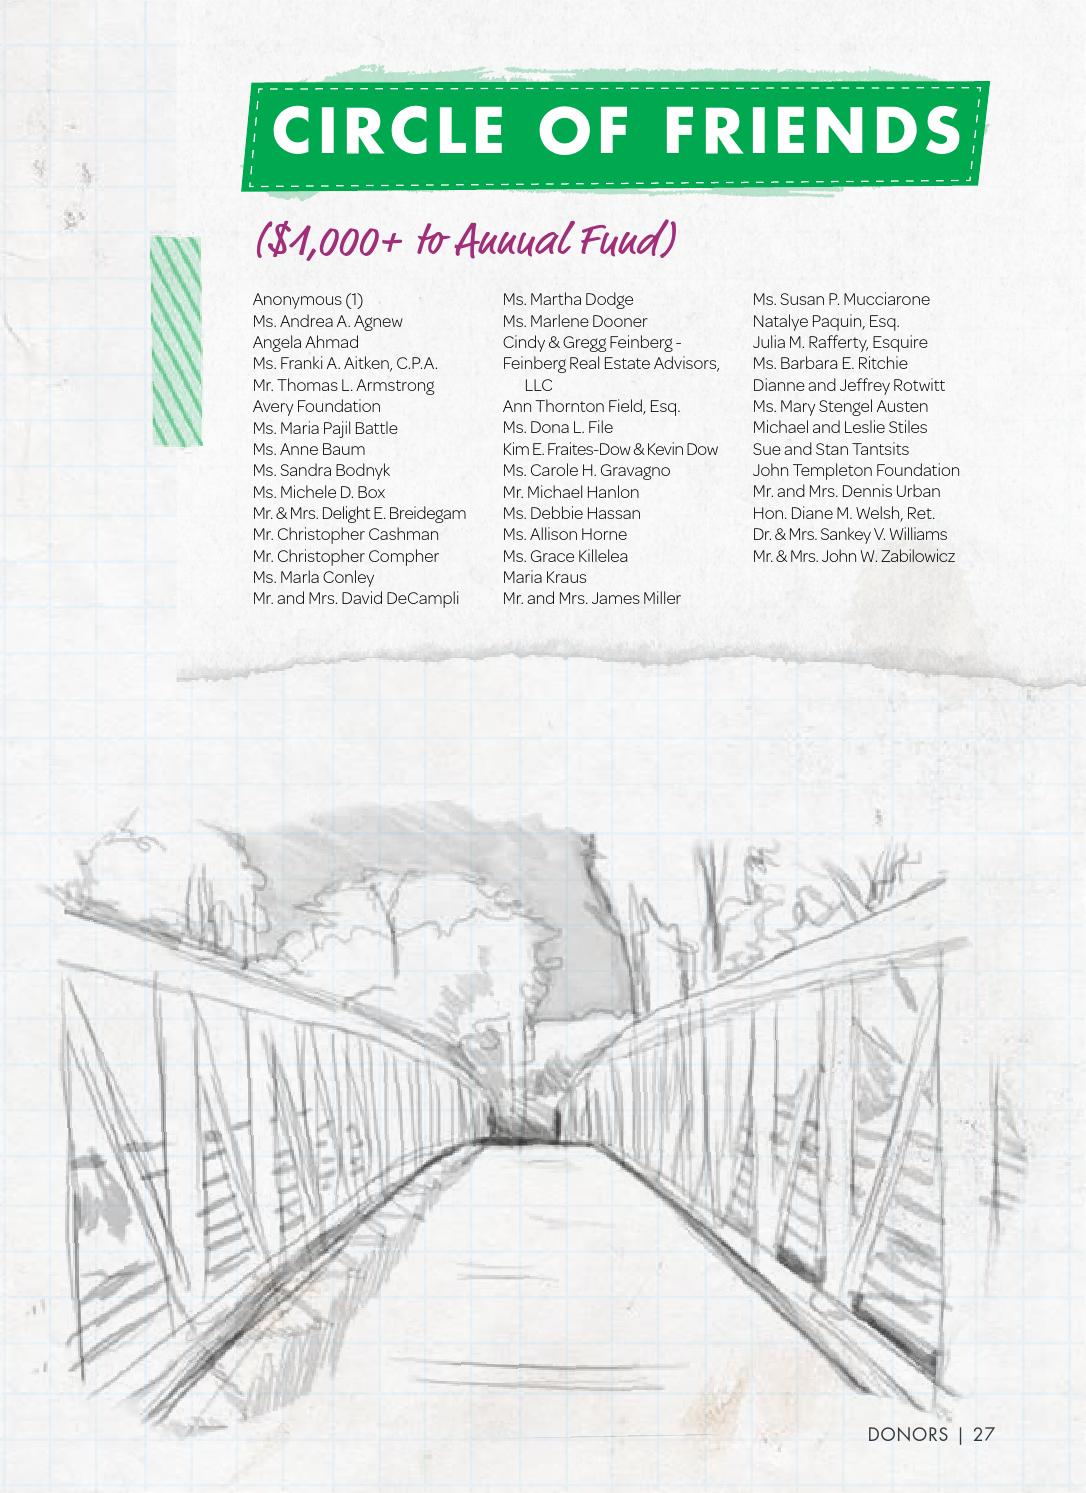 CIRCLE OF FRIENDS
($1,000+ to Annual Fund)
Anonymous (1)
Ms. Andrea A. Agnew
Angela Ahmad
Ms. Franki A. Aitken, C.P.A.
Mr. Thomas L. Armstrong
Avery Foundation
Ms. Maria Pajil Battle
Ms. Anne Baum
Ms. Sandra Bodnyk
Ms. Michele D. Box
Mr. & Mrs. Delight E. Breidegam
Mr. Christopher Cashman
Mr. Christopher Compher
Ms. Marla Conley
Mr. and Mrs. David DeCampli
Ms. Martha Dodge
Ms. Marlene Dooner
Cindy & Gregg Feinberg -
Feinberg Real Estate Advisors,
LLC
Ann Thornton Field, Esq.
Ms. Dona L. File
Kim E. Fraites-Dow & Kevin Dow
Ms. Carole H. Gravagno
Mr. Michael Hanlon
Ms. Debbie Hassan
Ms. Allison Horne
Ms. Grace Killelea
Maria Kraus
Mr. and Mrs. James Miller
Ms. Susan P. Mucciarone
Natalye Paquin, Esq.
Julia M. Rafferty, Esquire
Ms. Barbara E. Ritchie
Dianne and Jeffrey Rotwitt
Ms. Mary Stengel Austen
Michael and Leslie Stiles
Sue and Stan Tantsits
John Templeton Foundation
Mr. and Mrs. Dennis Urban
Hon. Diane M. Welsh, Ret.
Dr. & Mrs. Sankey V. Williams
Mr. & Mrs. John W. Zabilowicz
DONORS | 27